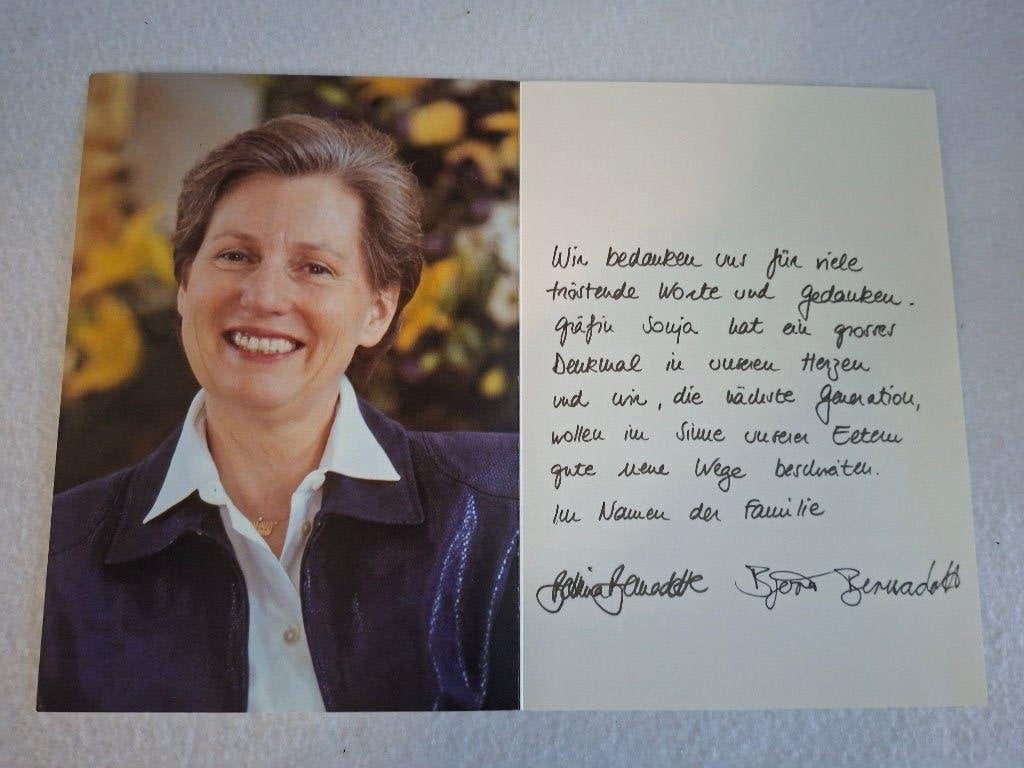 Wir bedanken uns für viele
tröstende Worte und Gedanken.
Gräfin Sonja hat ein grosses
Denkmal in unseren Herzen
und wir, die nächste Generation,
wollen im Sinne unserer Eltern
gute neue Wege beschreiten.
Im Namen der Familie
Bettina Bernadotte Björn Bernadotte